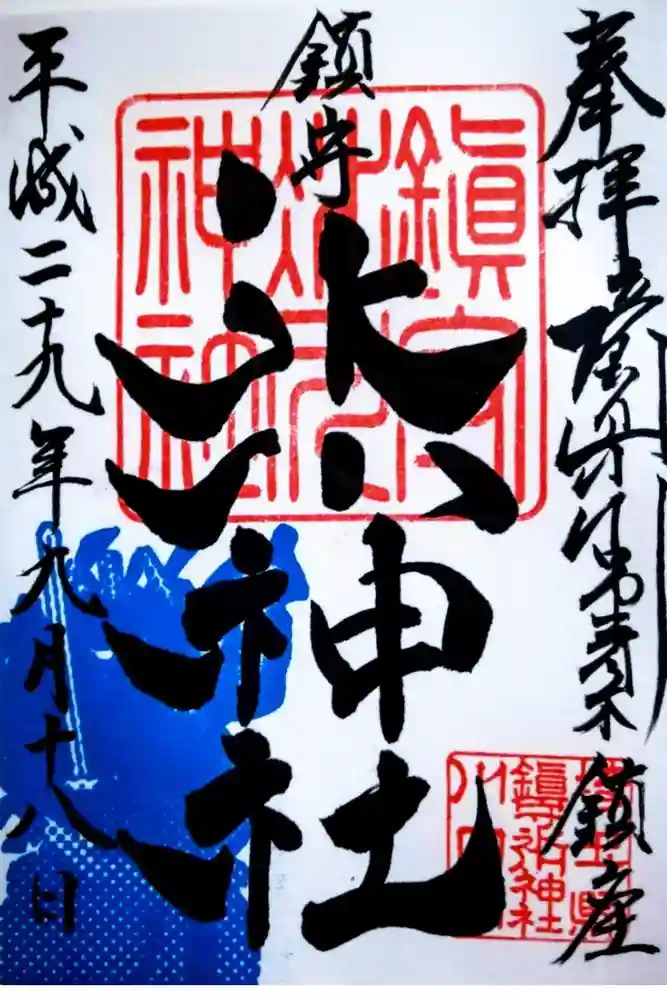 奉拝 青木 鎮座
鎮守
氷川神社
平成二十九年九月十八日
鎮守
氷川
神社
埼玉県
鎮守氷川神社
川口